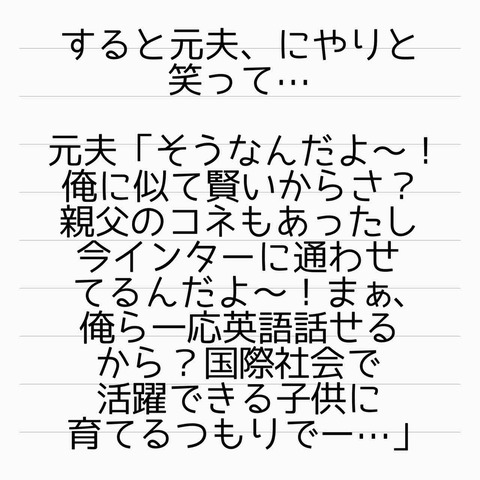 すると元夫、にやりと
笑って…
元夫「そうなんだよ〜！
俺に似て賢いからさ？
親父のコネもあったし
今インターに通わせ
てるんだよ〜！まぁ、
俺ら一応英語話せる
から？国際社会で
活躍できる子供に
育てるつもりでー…」